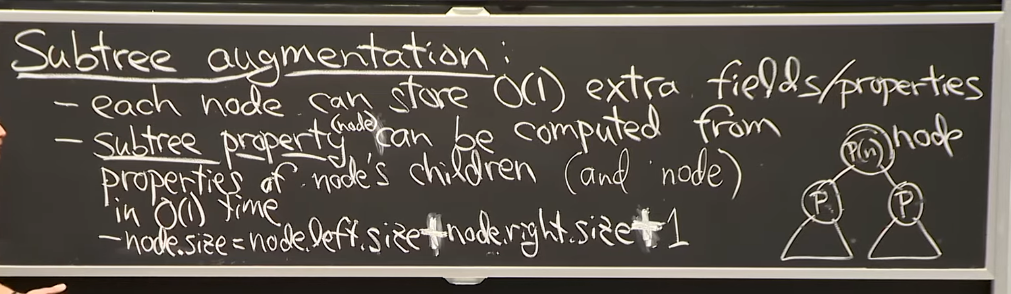 Subtree augmentation:
- each node can store O(1) extra fields/properties
- subtree property(node) can be computed from
properties of node's children (and node)
in O(1) time
- node.size = node.left.size + node.right.size + 1
node
P(n)
P P